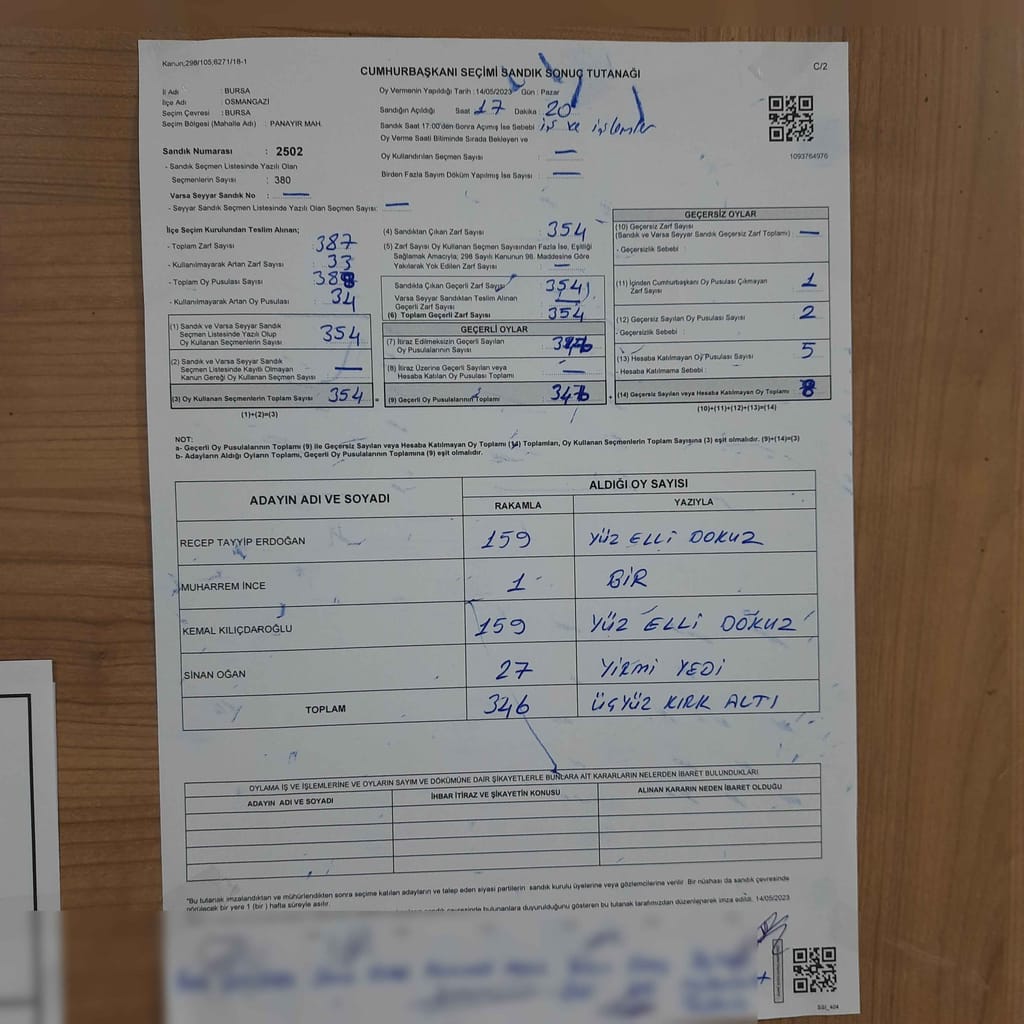 Kanun;298/105;6271/18-1
C/2
CUMHURBAŞKANI SEÇİMİ SANDIK SONUÇ TUTANAĞI
İl Adı : BURSA
İlçe Adı : OSMANGAZİ
Seçim Çevresi : BURSA
Seçim Bölgesi (Mahalle Adı) : PANAYIR MAH.
Sandık Numarası : 2502
- Sandık Seçmen Listesinde Yazılı Olan
Seçmenlerin Sayısı : 380
Varsa Seyyar Sandık No : —
- Seyyar Sandık Seçmen Listesinde Yazılı Olan Seçmen Sayısı: —
Oy Vermenin Yapıldığı Tarih : 14/05/2023 Gün : Pazar
Sandığın Açıldığı Saat 17 Dakika : 20
Sandık Saat 17:00'den Sonra Açımış İse Sebebi : iş ve işlemler
Oy Verme Saati Bitiminde Sırada Bekleyen ve
Oy Kullandırılan Seçmen Sayısı : —
Birden Fazla Sayım Döküm Yapılmış İse Sayısı : —
1093764976
İlçe Seçim Kurulundan Teslim Alınan;
- Toplam Zarf Sayısı : 387
- Kullanılmayarak Artan Zarf Sayısı : 33
- Toplam Oy Pusulası Sayısı :
- Kullanılmayarak Artan Oy Pusulası : 34
(1) Sandık ve Varsa Seyyar Sandık
Seçmen Listesinde Yazılı Olup
Oy Kullanan Seçmenlerin Sayısı : 354
(2) Sandık ve Varsa Seyyar Sandık
Seçmen Listesinde Kayıtlı Olmayan
Kanun Gereği Oy Kullanan Seçmen Sayısı : —
(3) Oy Kullanan Seçmenlerin Toplam Sayısı : 354
(1)+(2)=(3)
(4) Sandıktan Çıkan Zarf Sayısı : 354
(5) Zarf Sayısı Oy Kullanan Seçmen Sayısından Fazla İse, Eşitliği
Sağlamak Amacıyla; 298 Sayılı Kanunun 98. Maddesine Göre
Yakılarak Yok Edilen Zarf Sayısı : —
Sandıkta Çıkan Geçerli Zarf Sayısı : 354
Varsa Seyyar Sandıktan Teslim Alınan
Geçerli Zarf Sayısı : —
(6) Toplam Geçerli Zarf Sayısı : 354
GEÇERLİ OYLAR
(7) İtiraz Edilmeksizin Geçerli Sayılan
Oy Pusulalarının Sayısı :
(8) İtiraz Üzerine Geçerli Sayılan veya
Hesaba Katılan Oy Pusulası Toplamı : —
(9) Geçerli Oy Pusulalarının Toplamı :
GEÇERSİZ OYLAR
(10) Geçersiz Zarf Sayısı
(Sandık ve Varsa Seyyar Sandık Geçersiz Zarf Toplamı) : —
- Geçersizlik Sebebi :
(11) İçinden Cumhurbaşkanı Oy Pusulası Çıkmayan
Zarf Sayısı : 1
(12) Geçersiz Sayılan Oy Pusulası Sayısı : 2
- Geçersizlik Sebebi :
(13) Hesaba Katılmayan Oy Pusulası Sayısı : 5
- Hesaba Katılmama Sebebi :
(14) Geçersiz Sayılan veya Hesaba Katılmayan Oy Toplamı : 8
(10)+(11)+(12)+(13)=(14)
NOT:
a- Geçerli Oy Pusulalarının Toplamı (9) ile Geçersiz Sayılan veya Hesaba Katılmayan Oy Toplamı (14) Toplamları, Oy Kullanan Seçmenlerin Toplam Sayısına (3) eşit olmalıdır. (9)+(14)=(3)
b- Adayların Aldığı Oyların Toplamı, Geçerli Oy Pusulalarının Toplamına (9) eşit olmalıdır.
ADAYIN ADI VE SOYADI ALDIĞI OY SAYISI
RAKAMLA YAZIYLA
RECEP TAYYİP ERDOĞAN 159 YÜZ ELLİ DOKUZ
MUHARREM İNCE 1 BİR
KEMAL KILIÇDAROĞLU 159 YÜZ ELLİ DOKUZ
SİNAN OĞAN 27 YİRMİ YEDİ
TOPLAM 346 ÜÇYÜZ KIRK ALTI
OYLAMA İŞ VE İŞLEMLERİNE VE OYLARIN SAYIM VE DÖKÜMÜNE DAİR ŞİKAYETLERLE BUNLARA AİT KARARLARIN NELERDEN İBARET BULUNDUKLARI
ADAYIN ADI VE SOYADI İHBAR İTİRAZ VE ŞİKAYETİN KONUSU ALINAN KARARIN NEDEN İBARET OLDUĞU
"Bu tutanak imzalandıktan ve mühürlendikten sonra seçime katılan adayların ve talep eden siyasi partilerin sandık kurulu üyelerine veya gözlemcilerine verilir. Bir nüshası da sandık çevresinde
görülecek bir yere 1 (bir) hafta süreyle asılır.
sandık çevresinde bulunanlara duyurulduğunu gösteren bu tutanak tarafımızdan düzenlenerek imza edildi. 14/05/2023